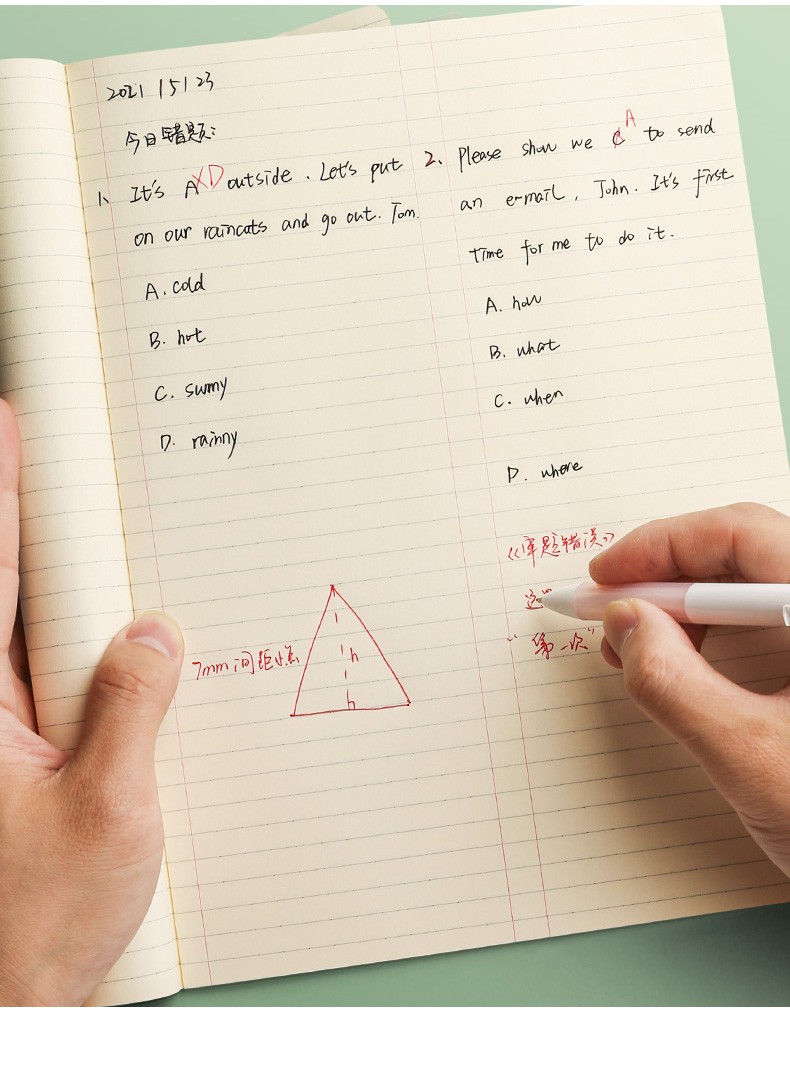 2021 / 5 / 23
今日错题:
1、It's A X D outside. Let's put
on our raincats and go out. Tom.
A. cold
B. hot
C. sumy
D. rainny
2、Please show we C A to send
an e-mail, John. It's first
time for me to do it.
A. how
B. what
C. when
D. where
《审题错误》
这
"第一次"
7mm间距
h